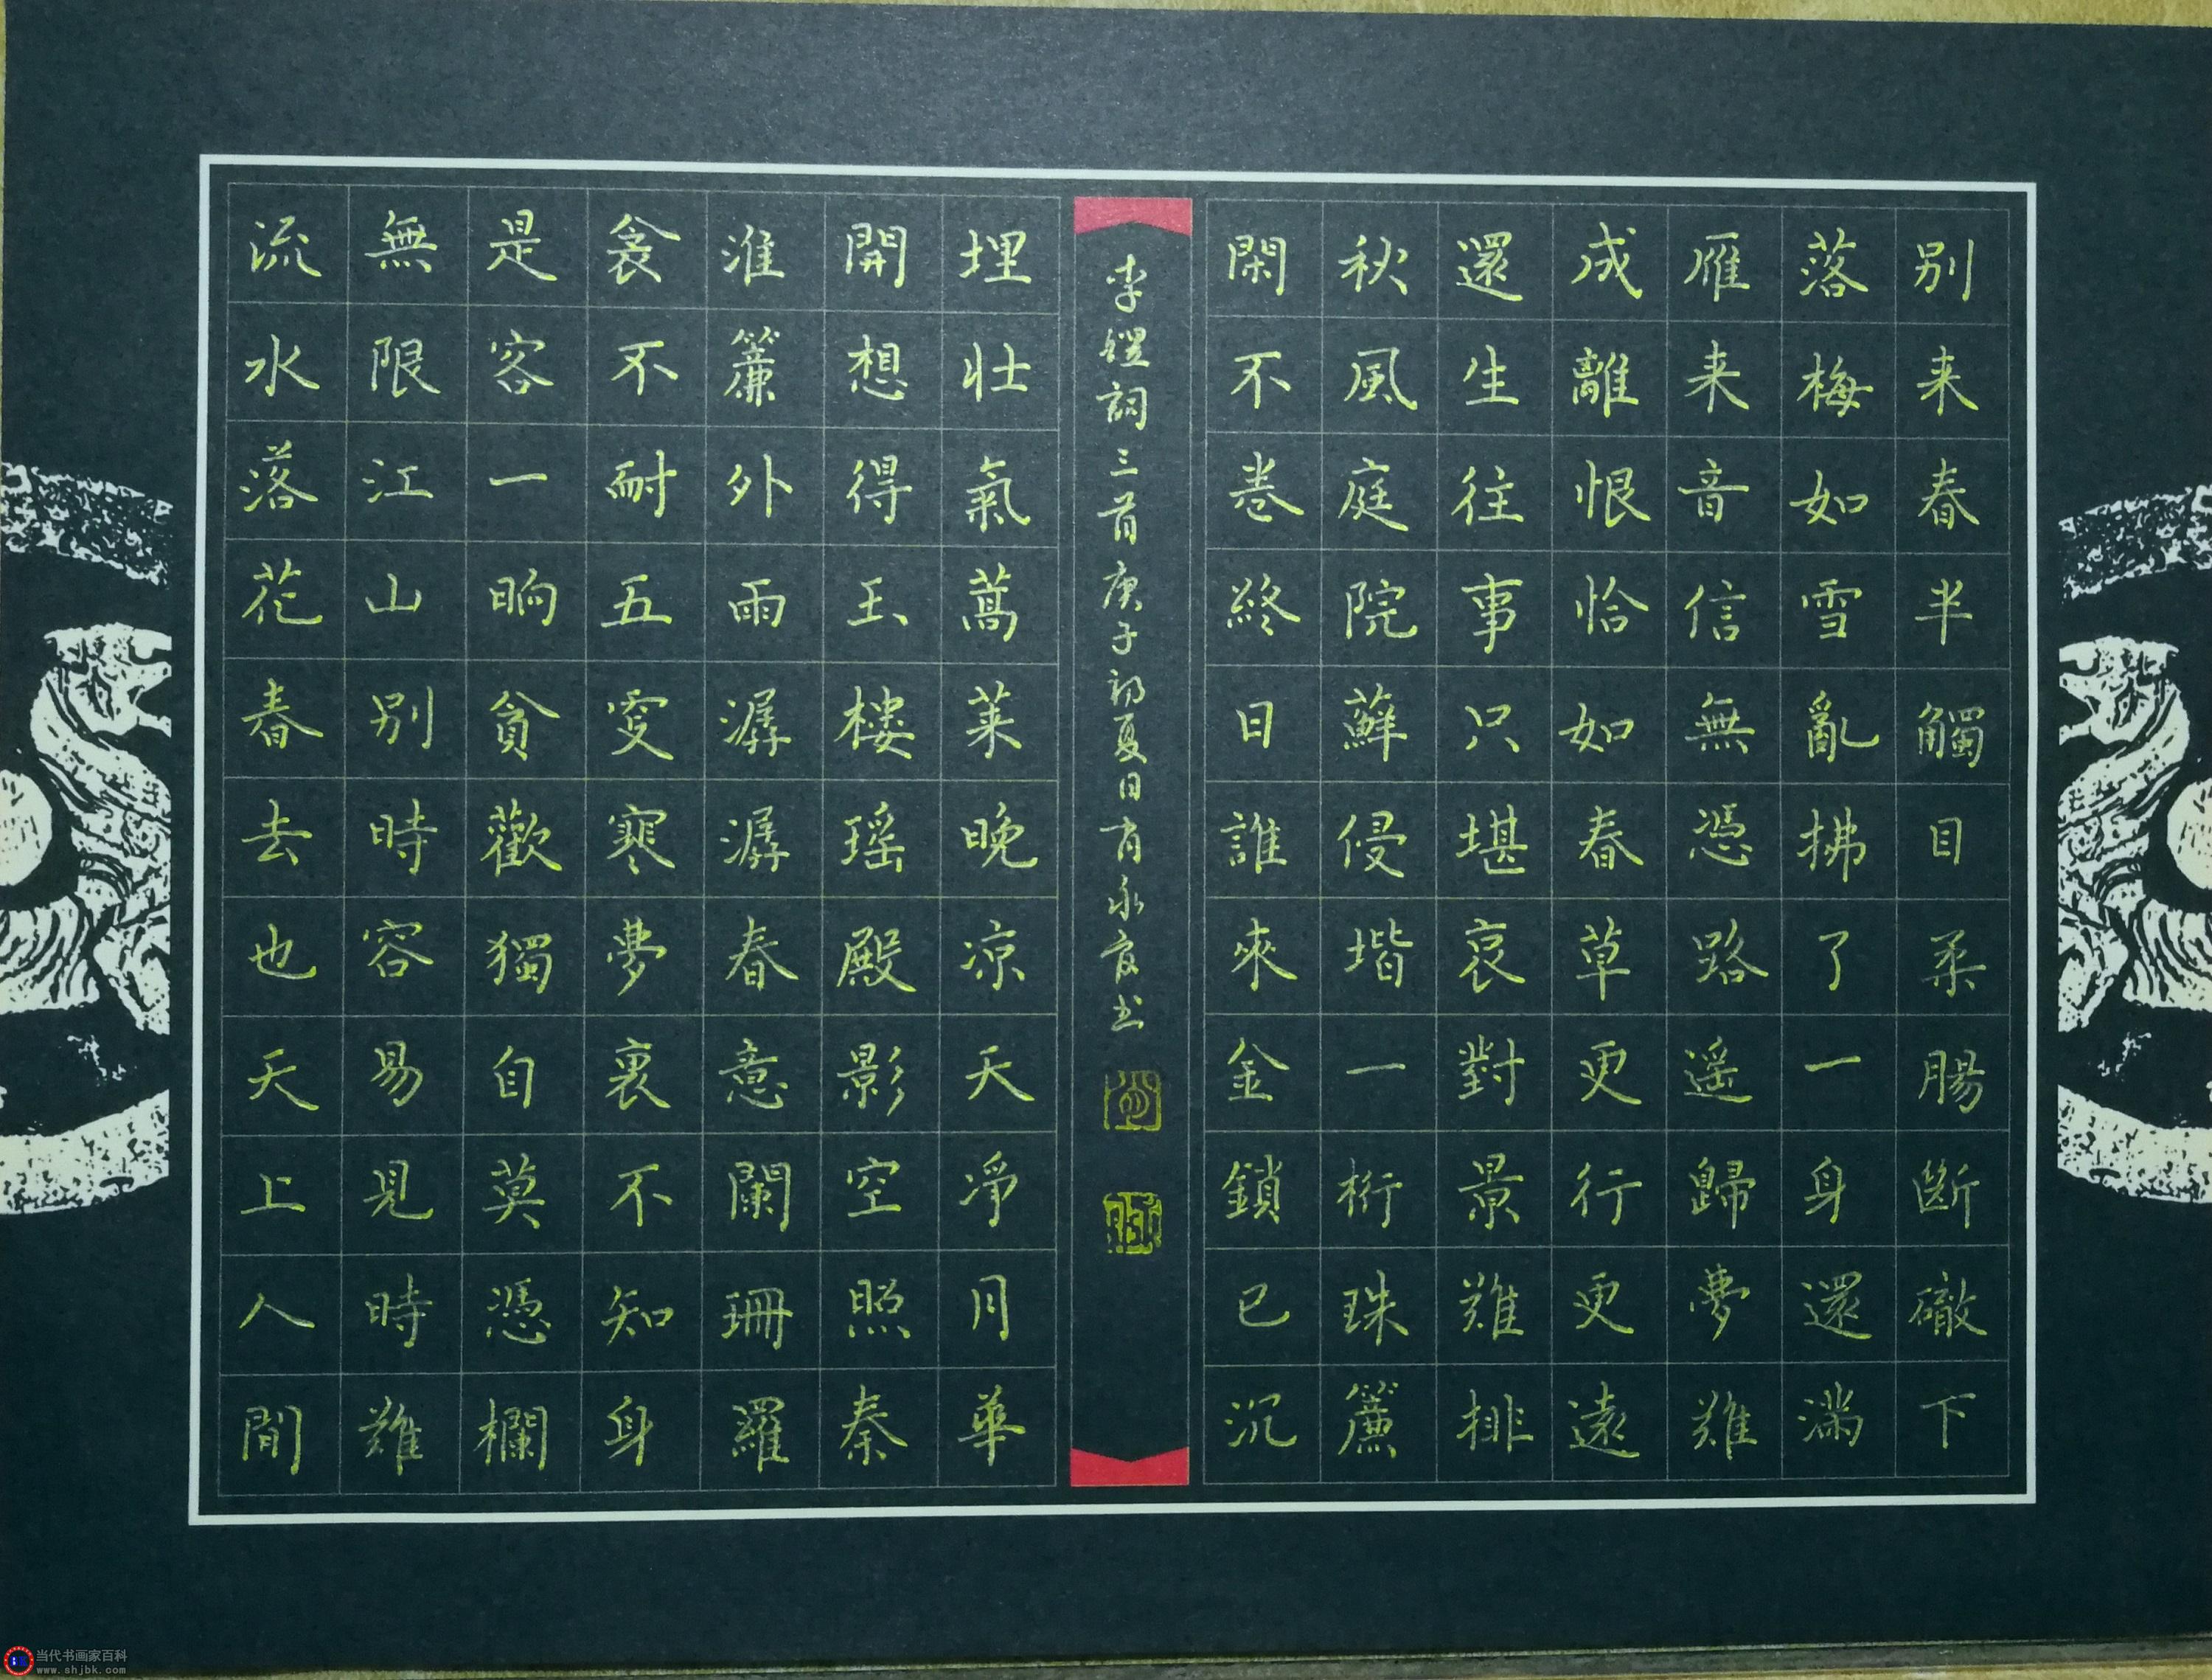 别来春半觸目柔腸斷下
落梅如雪亂拂了一身還滿
雁来音信無憑路遥歸夢難
成離恨恰如春草更行更遠
還生往事只堪哀對景難排
秋風庭院蘚侵堦一桁珠簾
閑不卷終日誰來金鎖已沉
李煜詞三首庚子初夏日肖永书
埋壮氣蒿莱晚凉天净月華
開想得玉樓瑶殿影空照秦
淮簾外雨潺潺春意闌珊羅
衾不耐五更寒夢裏不知身
是客一晌貪歡獨自莫憑欄
無限江山别時容易見時難
流水落花春去也天上人間
当代书画家百科
www.shjbk.com